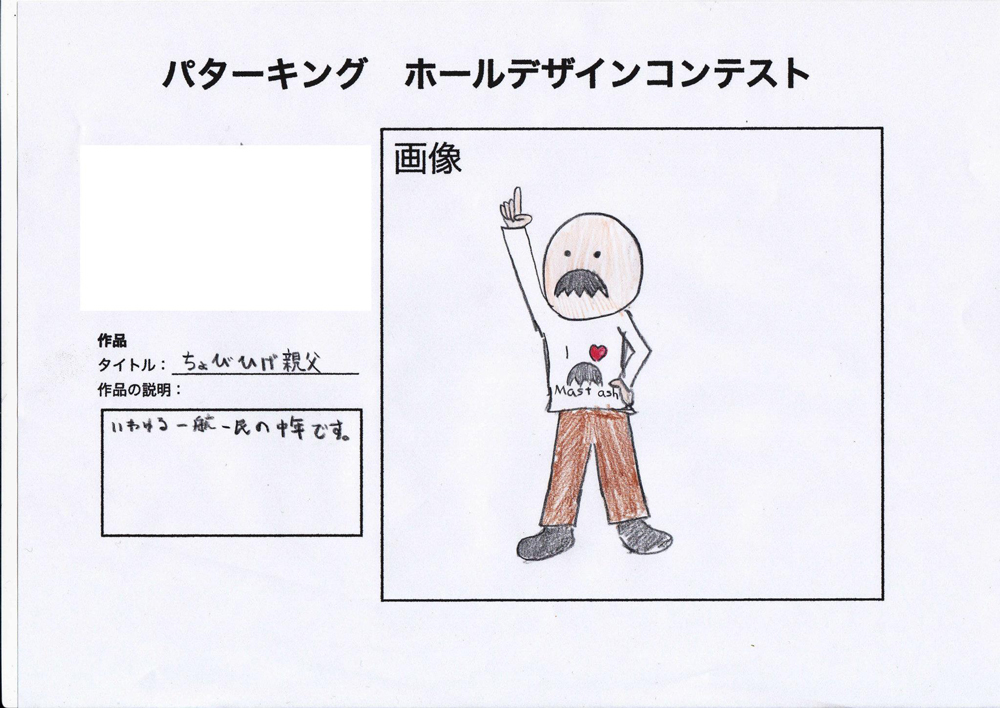 パターキング　ホールデザインコンテスト
画像
作品
タイトル： ちょびひげ親父
作品の説明：
いわゆる一般一民の中年です。
I
Mast ash